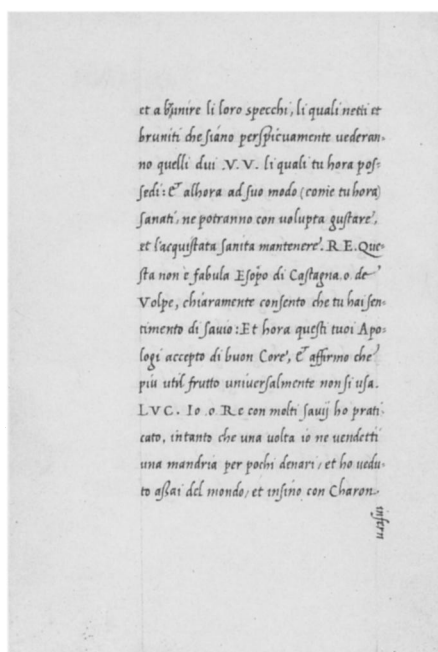 et a brunire li loro specchi, li quali netti et
bruniti che siano perspicuamente vederan-
no quelli dui .V.V. li quali tu hora pos-
sedi: & alhora ad suo modo (come tu hora)
sanati, ne potranno con volupta gustare,
et l'acquistata sanita mantenere. RE. Que-
sta non è fabula Esopo di Castagna .o. de
Volpe, chiaramente consento che tu hai sen-
timento di savio: Et hora questi tuoi Apo-
logi accepto di buon Core, & affirmo che
più util frutto universalmente non si usa.
LVC. Io .o. Re con molti savij ho prati-
cato, intanto che una volta io ne vendetti
una mandria per pochi denari, et ho vedu-
to assai del mondo, et insino con Charon
inferu